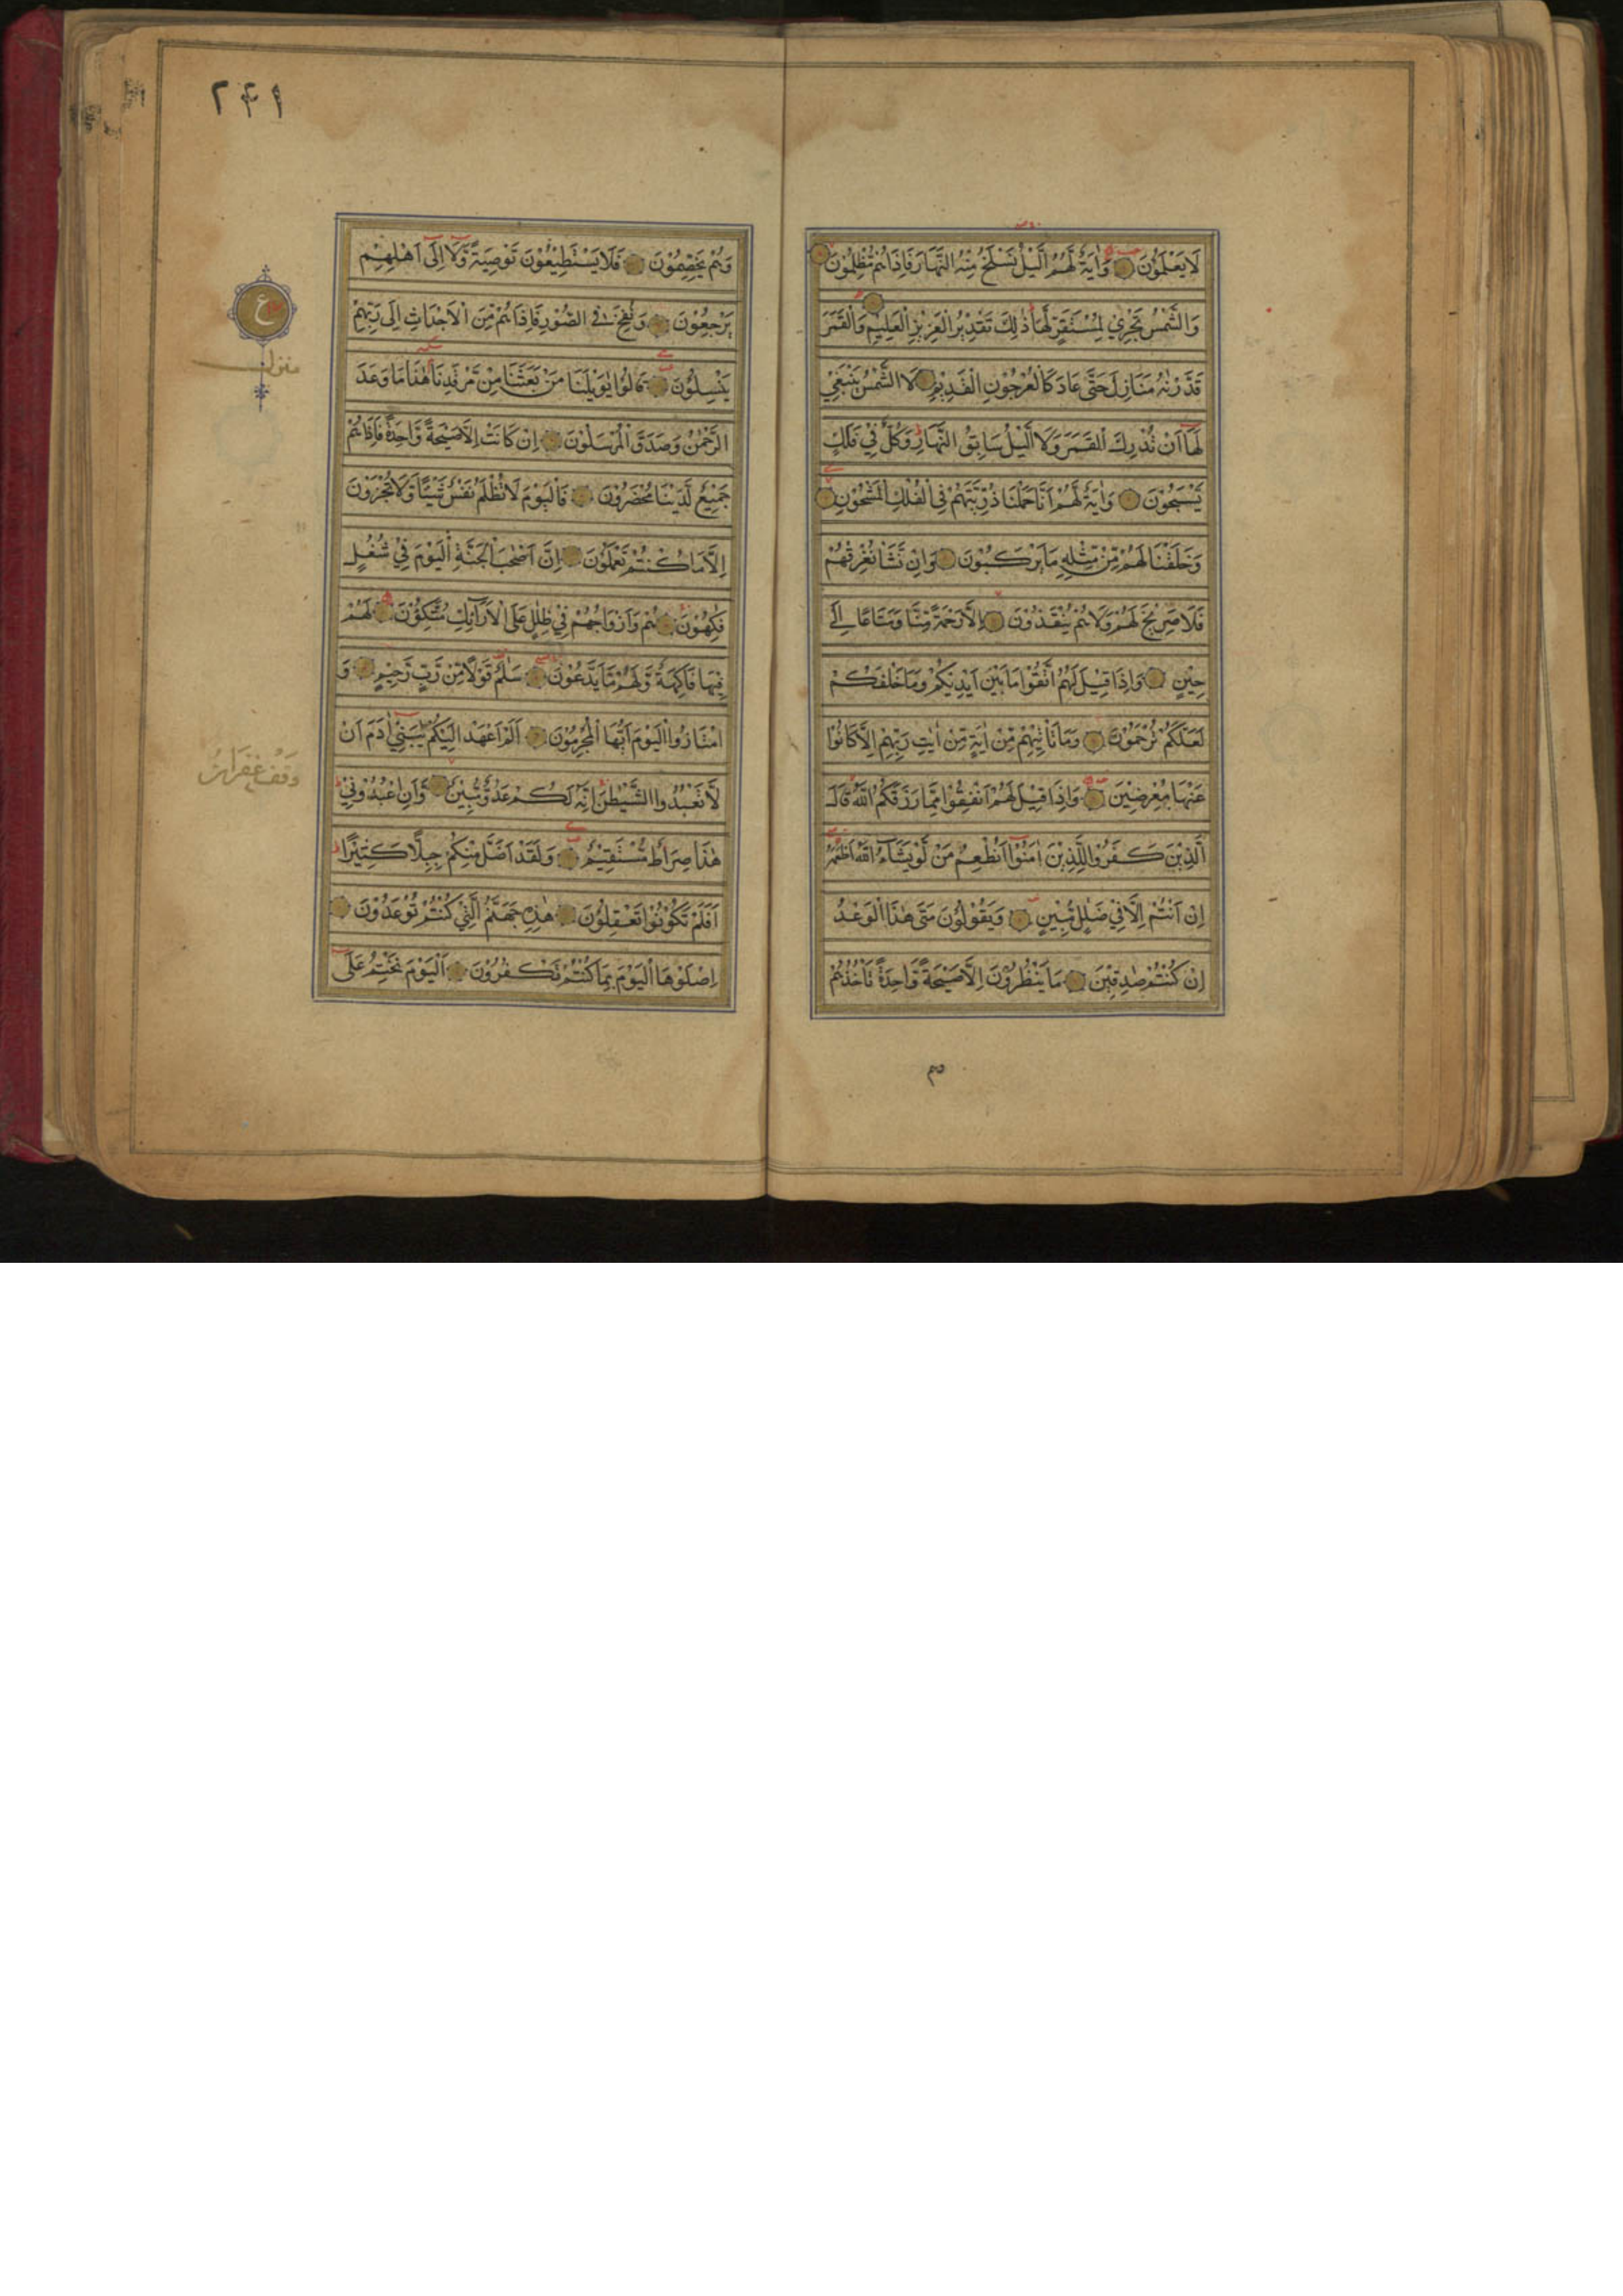 لَا يَعْلَمُوْنَ وَاٰيَةٌ لَّهُمُ الَّيْلُ نَسْلَخُ مِنْهُ النَّهَارَ فَاِذَا هُمْ مُّظْلِمُوْنَ
وَالشَّمْسُ تَجْرِيْ لِمُسْتَقَرٍّ لَّهَا ذٰلِكَ تَقْدِيْرُ الْعَزِيْزِ الْعَلِيْمِ وَالْقَمَرَ
قَدَّرْنٰهُ مَنَازِلَ حَتّٰى عَادَ كَالْعُرْجُوْنِ الْقَدِيْمِ لَا الشَّمْسُ يَنْبَغِيْ
لَهَآ اَنْ تُدْرِكَ الْقَمَرَ وَلَا الَّيْلُ سَابِقُ النَّهَارِ وَكُلٌّ فِيْ فَلَكٍ
يَّسْبَحُوْنَ وَاٰيَةٌ لَّهُمْ اَنَّا حَمَلْنَا ذُرِّيَّتَهُمْ فِي الْفُلْكِ الْمَشْحُوْنِ
وَخَلَقْنَا لَهُمْ مِّنْ مِّثْلِهٖ مَا يَرْكَبُوْنَ وَاِنْ نَّشَاْ نُغْرِقْهُمْ
فَلَا صَرِيْخَ لَهُمْ وَلَا هُمْ يُنْقَذُوْنَ اِلَّا رَحْمَةً مِّنَّا وَمَتَاعًا اِلٰى
حِيْنٍ وَاِذَا قِيْلَ لَهُمُ اتَّقُوْا مَا بَيْنَ اَيْدِيْكُمْ وَمَا خَلْفَكُمْ
لَعَلَّكُمْ تُرْحَمُوْنَ وَمَا تَاْتِيْهِمْ مِّنْ اٰيَةٍ مِّنْ اٰيٰتِ رَبِّهِمْ اِلَّا كَانُوْا
عَنْهَا مُعْرِضِيْنَ وَاِذَا قِيْلَ لَهُمْ اَنْفِقُوْا مِمَّا رَزَقَكُمُ اللّٰهُ قَالَ
الَّذِيْنَ كَفَرُوْا لِلَّذِيْنَ اٰمَنُوْٓا اَنُطْعِمُ مَنْ لَّوْ يَشَآءُ اللّٰهُ اَطْعَمَهٗ
اِنْ اَنْتُمْ اِلَّا فِيْ ضَلٰلٍ مُّبِيْنٍ وَيَقُوْلُوْنَ مَتٰى هٰذَا الْوَعْدُ
اِنْ كُنْتُمْ صٰدِقِيْنَ مَا يَنْظُرُوْنَ اِلَّا صَيْحَةً وَّاحِدَةً تَاْخُذُهُمْ
وَهُمْ
٢٤١
وَهُمْ يَخِصِّمُوْنَ فَلَا يَسْتَطِيْعُوْنَ تَوْصِيَةً وَّلَآ اِلٰٓى اَهْلِهِمْ
يَرْجِعُوْنَ وَنُفِخَ فِي الصُّوْرِ فَاِذَا هُمْ مِّنَ الْاَجْدَاثِ اِلٰى رَبِّهِمْ
يَنْسِلُوْنَ قَالُوْا يٰوَيْلَنَا مَنْۢ بَعَثَنَا مِنْ مَّرْقَدِنَا هٰذَا مَا وَعَدَ
الرَّحْمٰنُ وَصَدَقَ الْمُرْسَلُوْنَ اِنْ كَانَتْ اِلَّا صَيْحَةً وَّاحِدَةً فَاِذَا هُمْ
جَمِيْعٌ لَّدَيْنَا مُحْضَرُوْنَ فَالْيَوْمَ لَا تُظْلَمُ نَفْسٌ شَيْئًا وَّلَا تُجْزَوْنَ
اِلَّا مَا كُنْتُمْ تَعْمَلُوْنَ اِنَّ اَصْحٰبَ الْجَنَّةِ الْيَوْمَ فِيْ شُغُلٍ
فٰكِهُوْنَ هُمْ وَاَزْوَاجُهُمْ فِيْ ظِلٰلٍ عَلَى الْاَرَآئِكِ مُتَّكِؤُنَ لَهُمْ
فِيْهَا فَاكِهَةٌ وَّلَهُمْ مَّا يَدَّعُوْنَ سَلٰمٌ قَوْلًا مِّنْ رَّبٍّ رَّحِيْمٍ وَ
امْتَازُوا الْيَوْمَ اَيُّهَا الْمُجْرِمُوْنَ اَلَمْ اَعْهَدْ اِلَيْكُمْ يٰبَنِيْٓ اٰدَمَ اَنْ
لَّا تَعْبُدُوا الشَّيْطٰنَ اِنَّهٗ لَكُمْ عَدُوٌّ مُّبِيْنٌ وَّاَنِ اعْبُدُوْنِيْ
هٰذَا صِرَاطٌ مُّسْتَقِيْمٌ وَلَقَدْ اَضَلَّ مِنْكُمْ جِبِلًّا كَثِيْرًا
اَفَلَمْ تَكُوْنُوْا تَعْقِلُوْنَ هٰذِهٖ جَهَنَّمُ الَّتِيْ كُنْتُمْ تُوْعَدُوْنَ
اِصْلَوْهَا الْيَوْمَ بِمَا كُنْتُمْ تَكْفُرُوْنَ اَلْيَوْمَ نَخْتِمُ عَلٰٓى
ع
منزل
وقف غفران